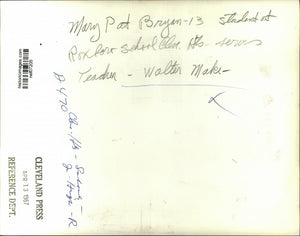 Mary Pat Bryan - 13 student at
Roxboro School Clev. Hts. serves
Teacher - Walter Make -
P 470 Clev. Hts - Schools -
Jr. High - R
CLEVELAND PRESS
APR 13 1967
REFERENCE DEPT.